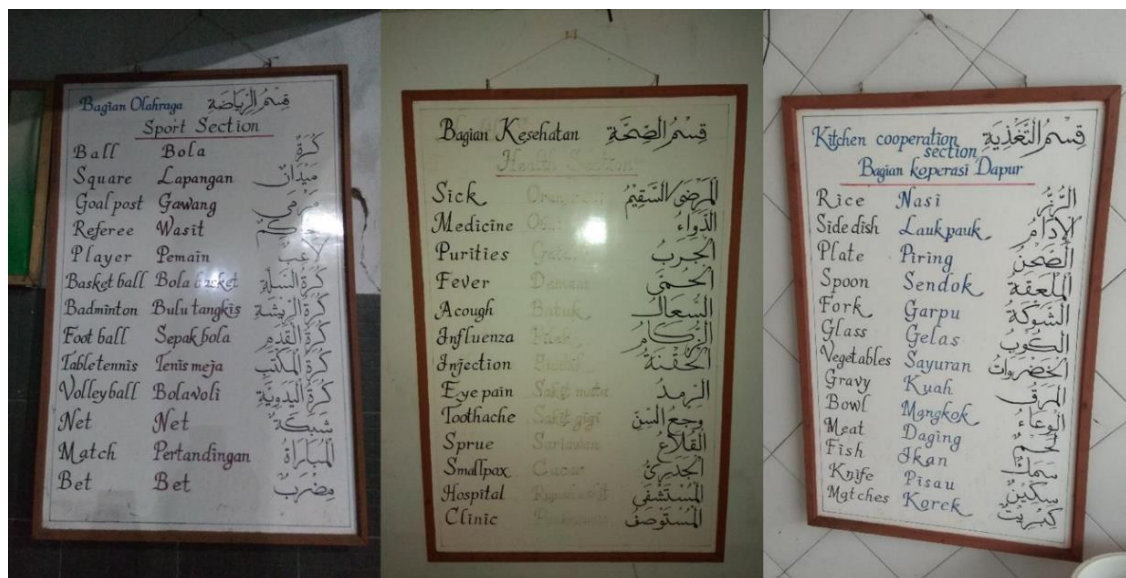 Bagian Olahraga قِسْمُ الرِّيَاضَةِ
Sport Section
Ball Bola كُرَةٌ
Square Lapangan مَيْدَانٌ
Goal post Gawang مَرْمَى
Referee Wasit حَكَمٌ
Player Pemain لَاعِبٌ
Basket ball Bola basket كُرَةُ السَّلَّةِ
Badminton Bulu tangkis كُرَةُ الرِّيْشَةِ
Foot ball Sepak bola كُرَةُ الْقَدَمِ
Table tennis Tenis meja كُرَةُ الْمَكْتَبِ
Volley ball Bola voli كُرَةُ الْيَدَوِيَّةِ
Net Net شَبَكَةٌ
Match Pertandingan الْمُبَارَاةُ
Bet Bet مِضْرَبٌ
Bagian Kesehatan قِسْمُ الصِّحَّةِ
Health Section
Sick المَرْضَى/السَّقِيْمُ
Medicine الدَّوَاءُ
Purities الْجَرَبُ
Fever Demam الْحُمَّى
Acough Batuk السُّعَالُ
Influenza الزُّكَامُ
Injection الْحُقْنَةُ
Eye pain Sakit mata الرَّمَدُ
Toothache Sakit gigi وَجَعُ السِّنِّ
Sprue Sariawan الْقُلَاعُ
Smallpax Cacar الْجُدَرِيُّ
Hospital الْمُسْتَشْفَى
Clinic الْمُسْتَوْصَفُ
Kitchen cooperation section قِسْمُ التَّغْذِيَةِ
Bagian koperasi Dapur
Rice Nasi الرُّزُّ
Side dish Lauk pauk الْإِدَامُ
Plate Piring الصَّحْنُ
Spoon Sendok الْمِلْعَقَةُ
Fork Garpu الشَّوْكَةُ
Glass Gelas الْكُوْبُ
Vegetables Sayuran الْخَضْرَوَاتُ
Gravy Kuah الْمَرَقُ
Bowl Mangkok الْوِعَاءُ
Meat Daging لَحْمٌ
Fish Ikan سَمَكٌ
Knife Pisau سِكِّيْنٌ
Matches Korek كِبْرِيْتٌ